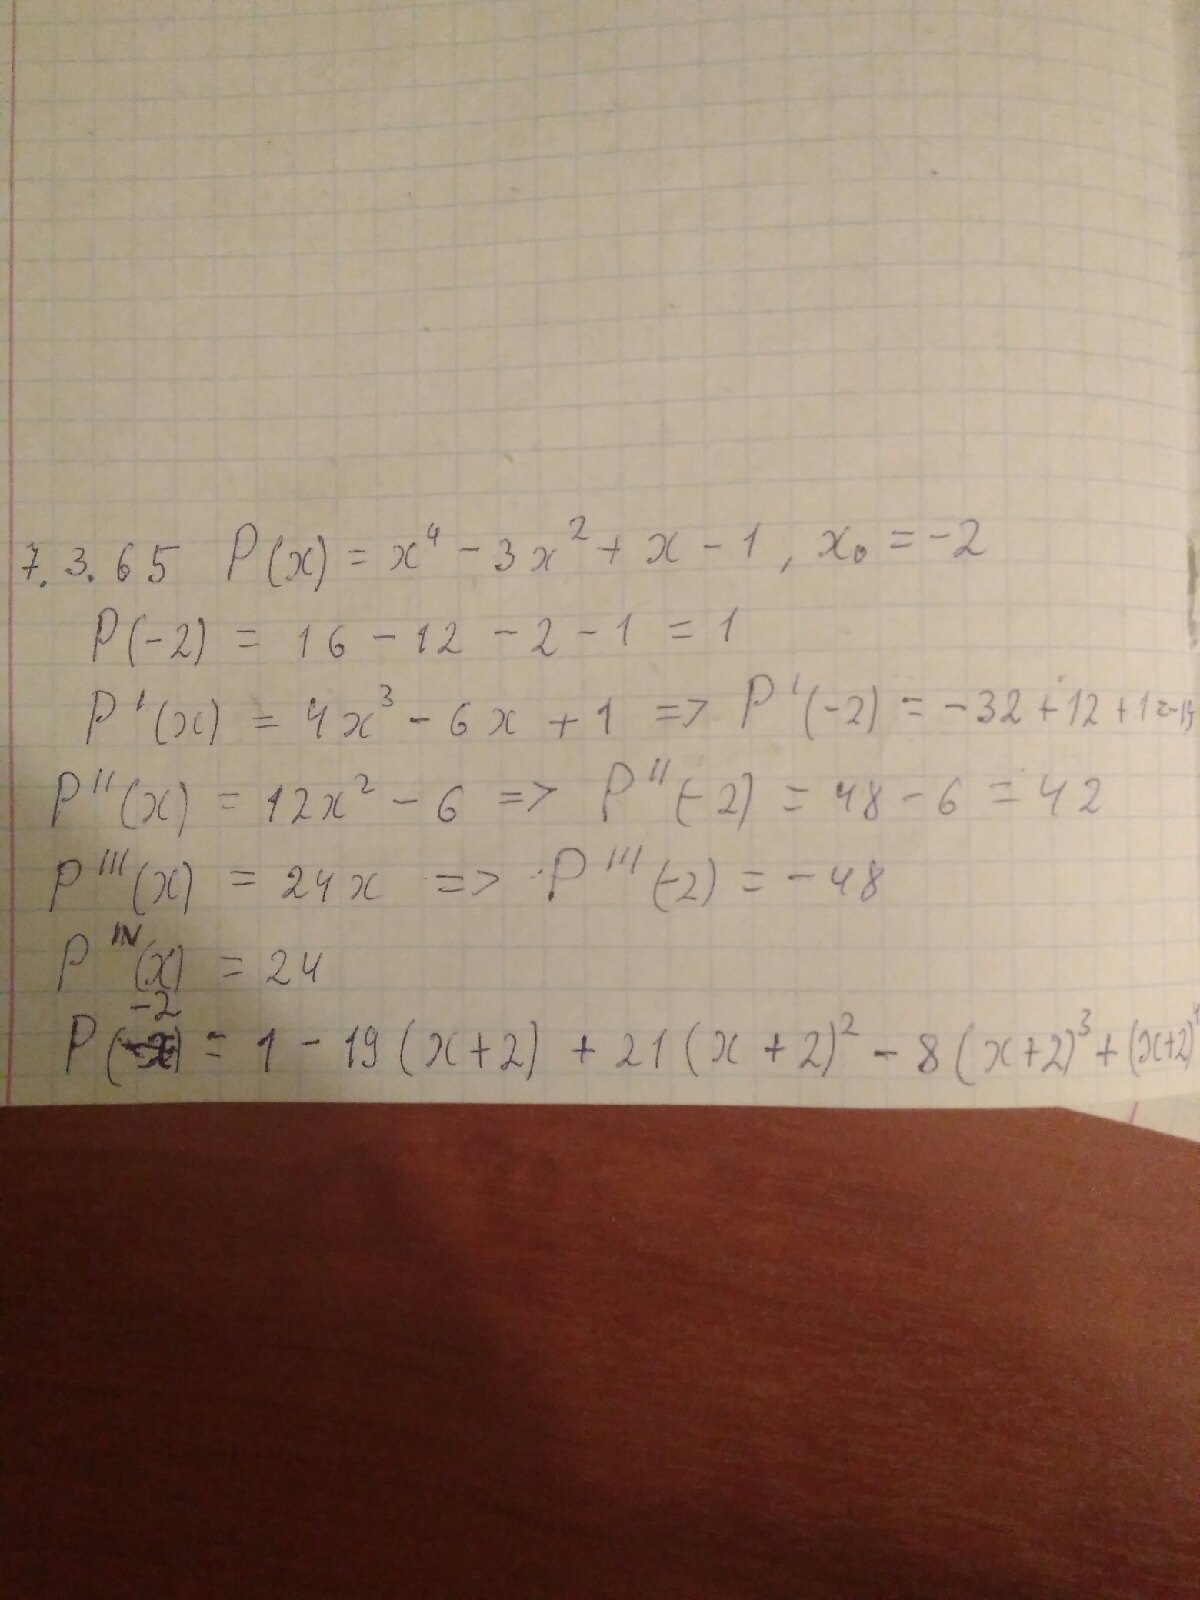 7.3.65 P(x) = x⁴ - 3x² + x - 1, x₀ = -2
P(-2) = 16 - 12 - 2 - 1 = 1
P'(x) = 4x³ - 6x + 1 => P'(-2) = -32 + 12 + 1 = -19
P''(x) = 12x² - 6 => P''(-2) = 48 - 6 = 42
P'''(x) = 24x => P'''(-2) = -48
P^IV(x) = 24
P(-2) = 1 - 19(x+2) + 21(x+2)² - 8(x+2)³ + (x+2)⁴